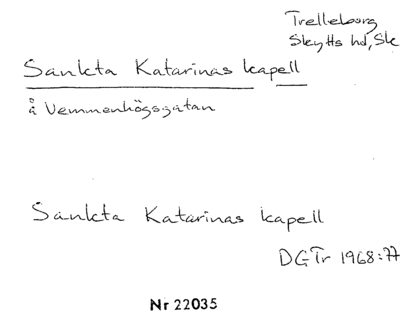 Trelleborg
Skytts hd, Sk
Sankta Katarinas kapell
å Vemmenhögsgatan
Sankta Katarinas kapell
DGTr 1968:77
Nr 22035